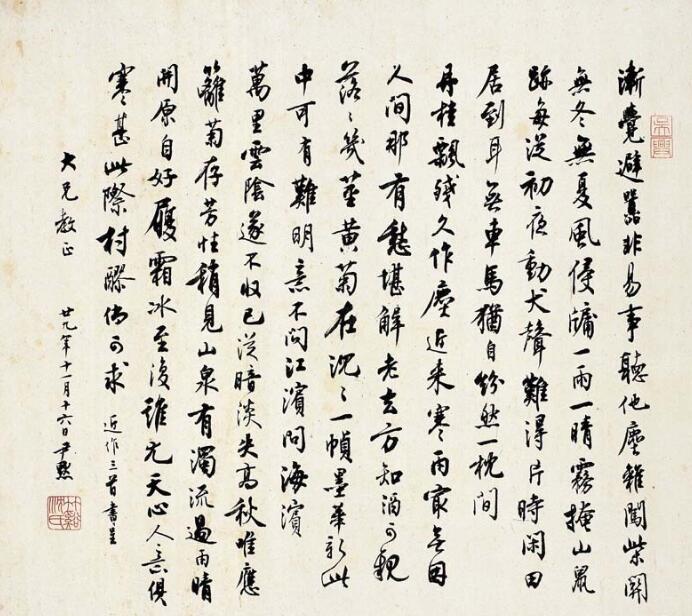 漸覺避囂非易事聽他塵雜闖柴關
無冬無夏風侵牖一雨一晴霧掩山鼠
跡每從初夜動犬聲難得片時閑田
居到耳無車馬猶自紛然一枕間
丹桂飄殘久作塵近來寒雨最無因
人間那有愁堪解老去方知酒可親
落〻幾莖黃菊在沉〻一幀墨華新此
中可有難明意不問江濱問海濱
萬里雲陰遂不收已從暗淡失高秋唯應
籬菊存芳性稍見山泉有濁流過雨晴
開原自好履霜冰至復誰尤天心人意俱
寒甚此際村醪倘可求 近作三首書呈
大兄教正 廿九年十一月十六日尹默
吳興
竹谿沈氏